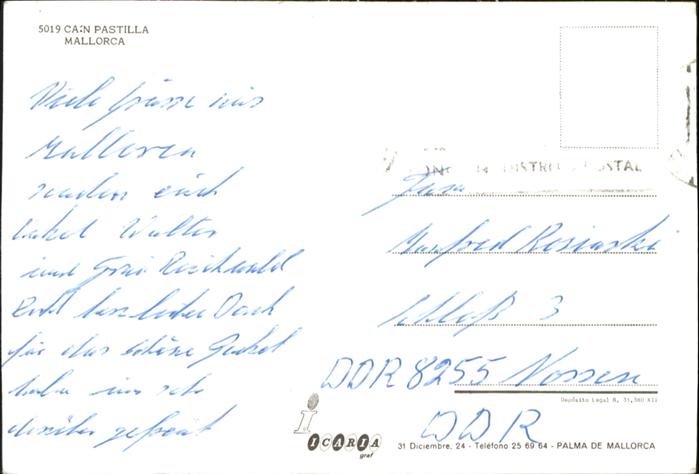 5019 CA'N PASTILLA
MALLORCA
Viele Grüsse aus
Mallorca
senden euch
Onkel Walter
und Frau
Recht herzlichen Dank
für das schöne Paket
habe uns sehr
darüber gefreut
DISTRITO POSTAL
Fam.
Manfred
Schloß 3
DDR 8255 Nossen
DDR
Depósito Legal B. 31,580 XII
ICARIA
graf
31 Diciembre, 24 - Teléfono 25 69 64 - PALMA DE MALLORCA